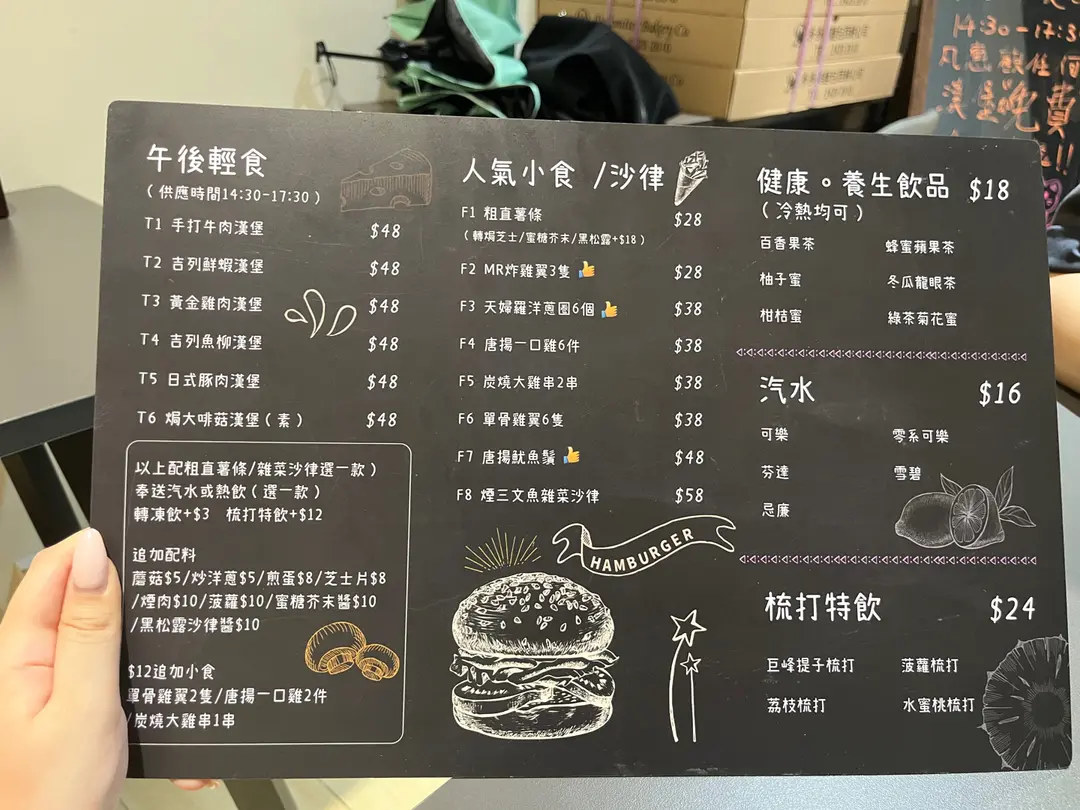 午後輕食
(供應時間14:30-17:30)
T1 手打牛肉漢堡 $48
T2 吉列鮮蝦漢堡 $48
T3 黃金雞肉漢堡 $48
T4 吉列魚柳漢堡 $48
T5 日式豚肉漢堡 $48
T6 焗大啡菇漢堡(素) $48
以上配粗直薯條/雜菜沙律選一款)
奉送汽水或熱飲(選一款)
轉凍飲+$3 梳打特飲+$12
追加配料
蘑菇$5/炒洋蔥$5/煎蛋$8/芝士片$8
/煙肉$10/菠蘿$10/蜜糖芥末醬$10
/黑松露沙律醬$10
$12追加小食
單骨雞翼2隻/唐揚一口雞2件
/炭燒大雞串1串
人氣小食 /沙律
F1 粗直薯條 $28
(轉焗芝士/蜜糖芥末/黑松露+$18)
F2 MR炸雞翼3隻👍 $28
F3 天婦羅洋蔥圈6個👍 $38
F4 唐揚一口雞6件 $38
F5 炭燒大雞串2串 $38
F6 單骨雞翼6隻 $38
F7 唐揚魷魚鬚👍 $48
F8 煙三文魚雜菜沙律 $58
HAMBURGER
健康。養生飲品 $18
(冷熱均可)
百香果茶 蜂蜜蘋果茶
柚子蜜 冬瓜龍眼茶
柑桔蜜 綠茶菊花蜜
汽水 $16
可樂 零系可樂
芬達 雪碧
忌廉
梳打特飲 $24
巨峰提子梳打 菠蘿梳打
荔枝梳打 水蜜桃梳打
Bakery Co
14:30-17:3
凡惠顧任何
漢堡免費